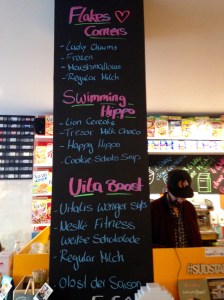 Flakes
Corners
- Lucky Charms
- Frozen
- Marshmallows
- Regular Milch
Swimming
Hippo
- Lion Cereals
- Tresor Milk Choco
- Happy Hippo
- Cookie Schoko Sirup
Vita Boost
- Vitalis weniger süß
- Nestlé Fitness
weiße Schokolade
- Regular Milch
- Obst der Saison